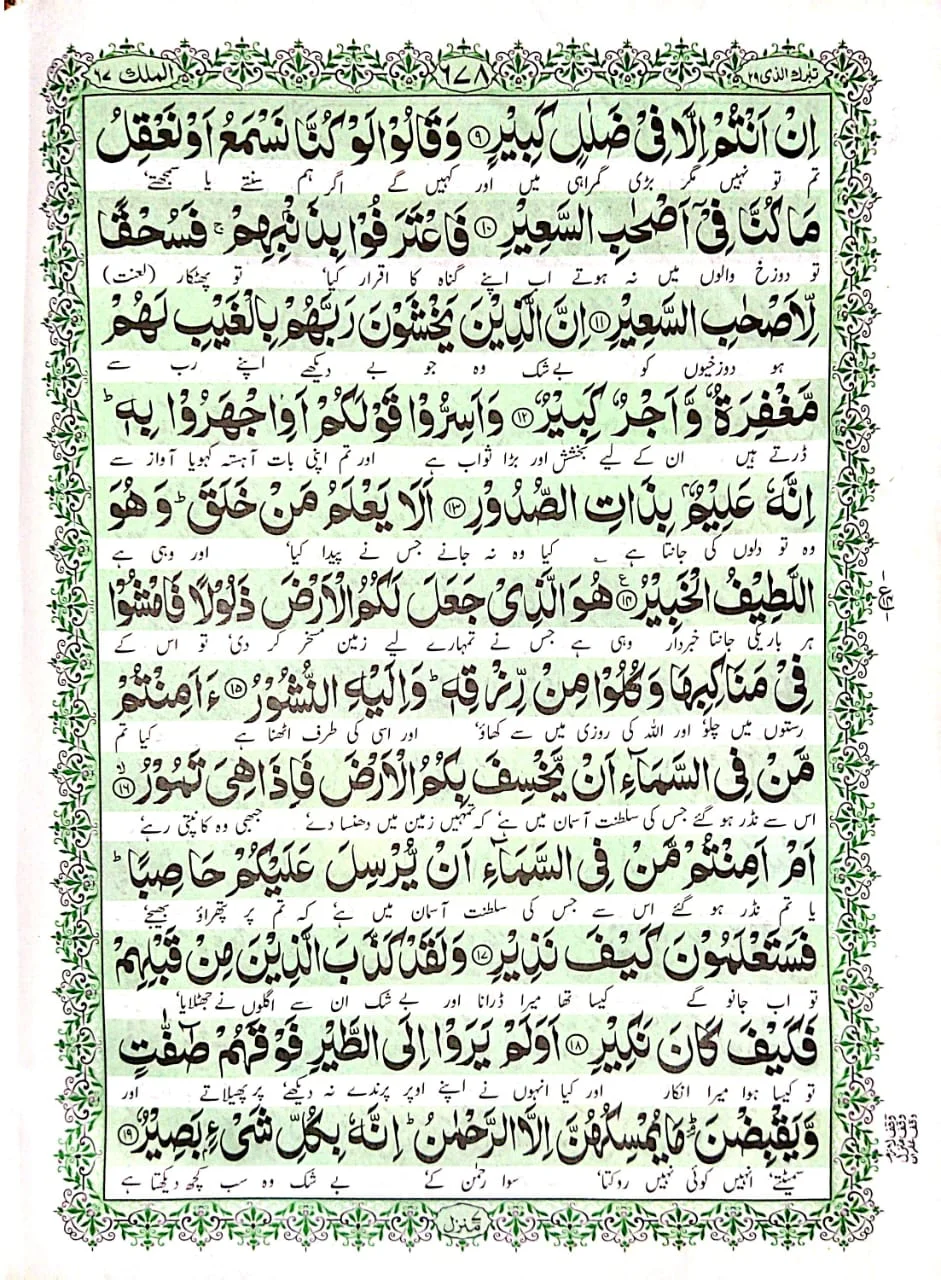 تبٰرك الذی ٢٩
٦٧٨
الملك ٦٧
اِنْ اَنْتُمْ اِلَّا فِیْ ضَلٰلٍ كَبِیْرٍ ۝٩ وَ قَالُوْا لَوْ كُنَّا نَسْمَعُ اَوْ نَعْقِلُ
تم تو نہیں مگر بڑی گمراہی میں اور کہیں گے اگر ہم سنتے یا سمجھتے،
مَا كُنَّا فِیْۤ اَصْحٰبِ السَّعِیْرِ ۝١٠ فَاعْتَرَفُوْا بِذَنْۢبِهِمْ ۚ فَسُحْقًا
تو دوزخ والوں میں نہ ہوتے اب اپنے گناہ کا اقرار کیا، تو پھٹکار (لعنت)
لِّاَصْحٰبِ السَّعِیْرِ ۝١١ اِنَّ الَّذِیْنَ یَخْشَوْنَ رَبَّهُمْ بِالْغَیْبِ لَهُمْ
ہو دوزخیوں کو بے شک وہ جو بے دیکھے اپنے رب سے
مَّغْفِرَةٌ وَّ اَجْرٌ كَبِیْرٌ ۝١٢ وَ اَسِرُّوْا قَوْلَكُمْ اَوِ اجْهَرُوْا بِهٖ ؕ
ڈرتے ہیں ان کے لیے بخشش اور بڑا ثواب ہے اور تم اپنی بات آہستہ کہو یا آواز سے
اِنَّهٗ عَلِیْمٌۢ بِذَاتِ الصُّدُوْرِ ۝١٣ اَلَا یَعْلَمُ مَنْ خَلَقَ ؕ وَ هُوَ
وہ تو دلوں کی جانتا ہے کیا وہ نہ جانے جس نے پیدا کیا، اور وہی ہے
اللَّطِیْفُ الْخَبِیْرُ ۝١٤ ع هُوَ الَّذِیْ جَعَلَ لَكُمُ الْاَرْضَ ذَلُوْلًا فَامْشُوْا
ہر باریکی جانتا خبردار وہی ہے جس نے تمہارے لیے زمین مسخر کر دی، تو اس کے
فِیْ مَنَاكِبِهَا وَ كُلُوْا مِنْ رِّزْقِهٖ ؕ وَ اِلَیْهِ النُّشُوْرُ ۝١٥ ءَاَمِنْتُمْ
رستوں میں چلو، اور اللہ کی روزی میں سے کھاؤ، اور اسی کی طرف اٹھنا ہے کیا تم
مَّنْ فِی السَّمَآءِ اَنْ یَّخْسِفَ بِكُمُ الْاَرْضَ فَاِذَا هِیَ تَمُوْرُ ۙ۝١٦
اس سے نڈر ہو گئے جس کی سلطنت آسمان میں ہے، کہ تمہیں زمین میں دھنسا دے، جبھی وہ کانپتی رہے،
اَمْ اَمِنْتُمْ مَّنْ فِی السَّمَآءِ اَنْ یُّرْسِلَ عَلَیْكُمْ حَاصِبًا ؕ
یا تم نڈر ہو گئے اس سے جس کی سلطنت آسمان میں ہے، کہ تم پر پتھراؤ بھیجے،
فَسَتَعْلَمُوْنَ كَیْفَ نَذِیْرِ ۝١٧ وَ لَقَدْ كَذَّبَ الَّذِیْنَ مِنْ قَبْلِهِمْ
تو اب جانو گے کیسا تھا میرا ڈرانا اور بے شک ان سے اگلوں نے جھٹلایا،
فَكَیْفَ كَانَ نَكِیْرِ ۝١٨ اَوَ لَمْ یَرَوْا اِلَی الطَّیْرِ فَوْقَهُمْ صٰٓفّٰتٍ
تو کیسا ہوا میرا انکار اور کیا انہوں نے اپنے اوپر پرندے نہ دیکھے، پر پھیلاتے اور
وَّ یَقْبِضْنَ ؕ مَا یُمْسِكُهُنَّ اِلَّا الرَّحْمٰنُ ؕ اِنَّهٗ بِكُلِّ شَیْءٍۭ بَصِیْرٌ ۝١٩
سمیٹتے، انہیں کوئی نہیں روکتا، سوا رحمٰن کے، بے شک وہ سب کچھ دیکھتا ہے
منزل ٧